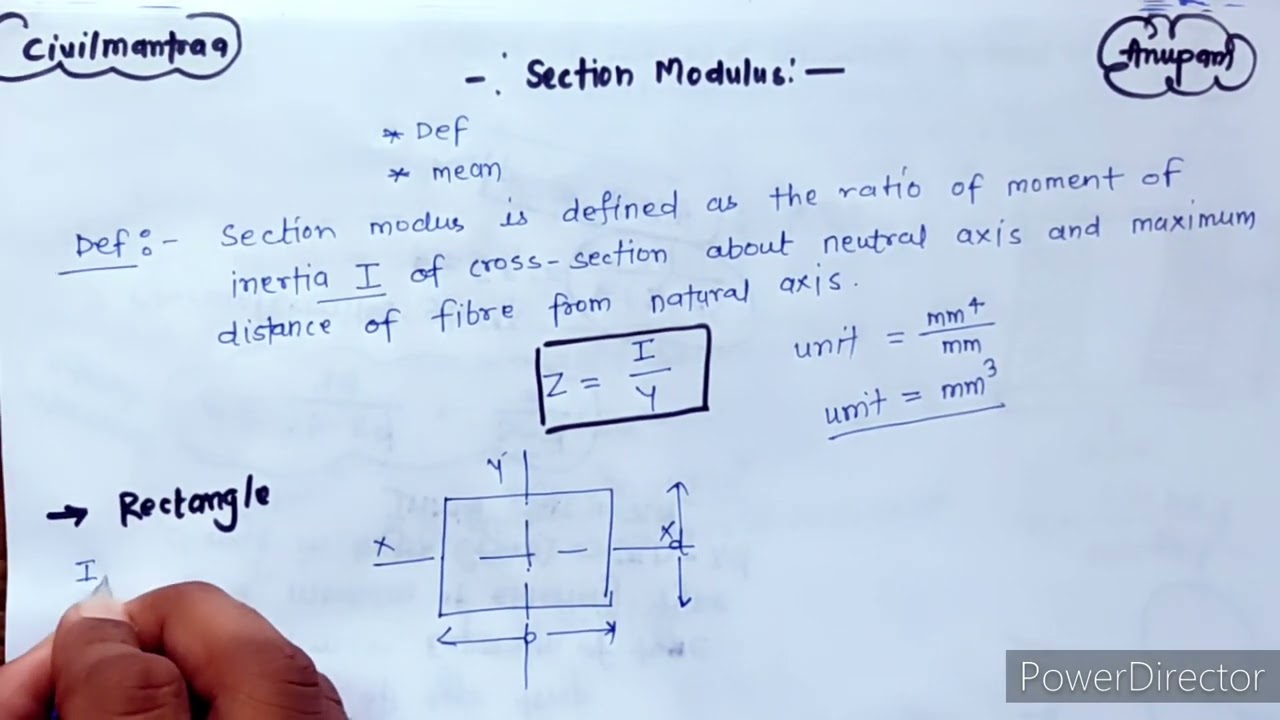 Civilmantraa
Anupam
-: Section Modulus:-
* Def
* mean
Def:- Section modus is defined as the ratio of moment of
inertia I of cross-section about neutral axis and maximum
distance of fibre from natural axis.
Z = I/Y
unit = mm⁴/mm
unit = mm³
→ Rectangle
I
Y
X
X
d
b
PowerDirector